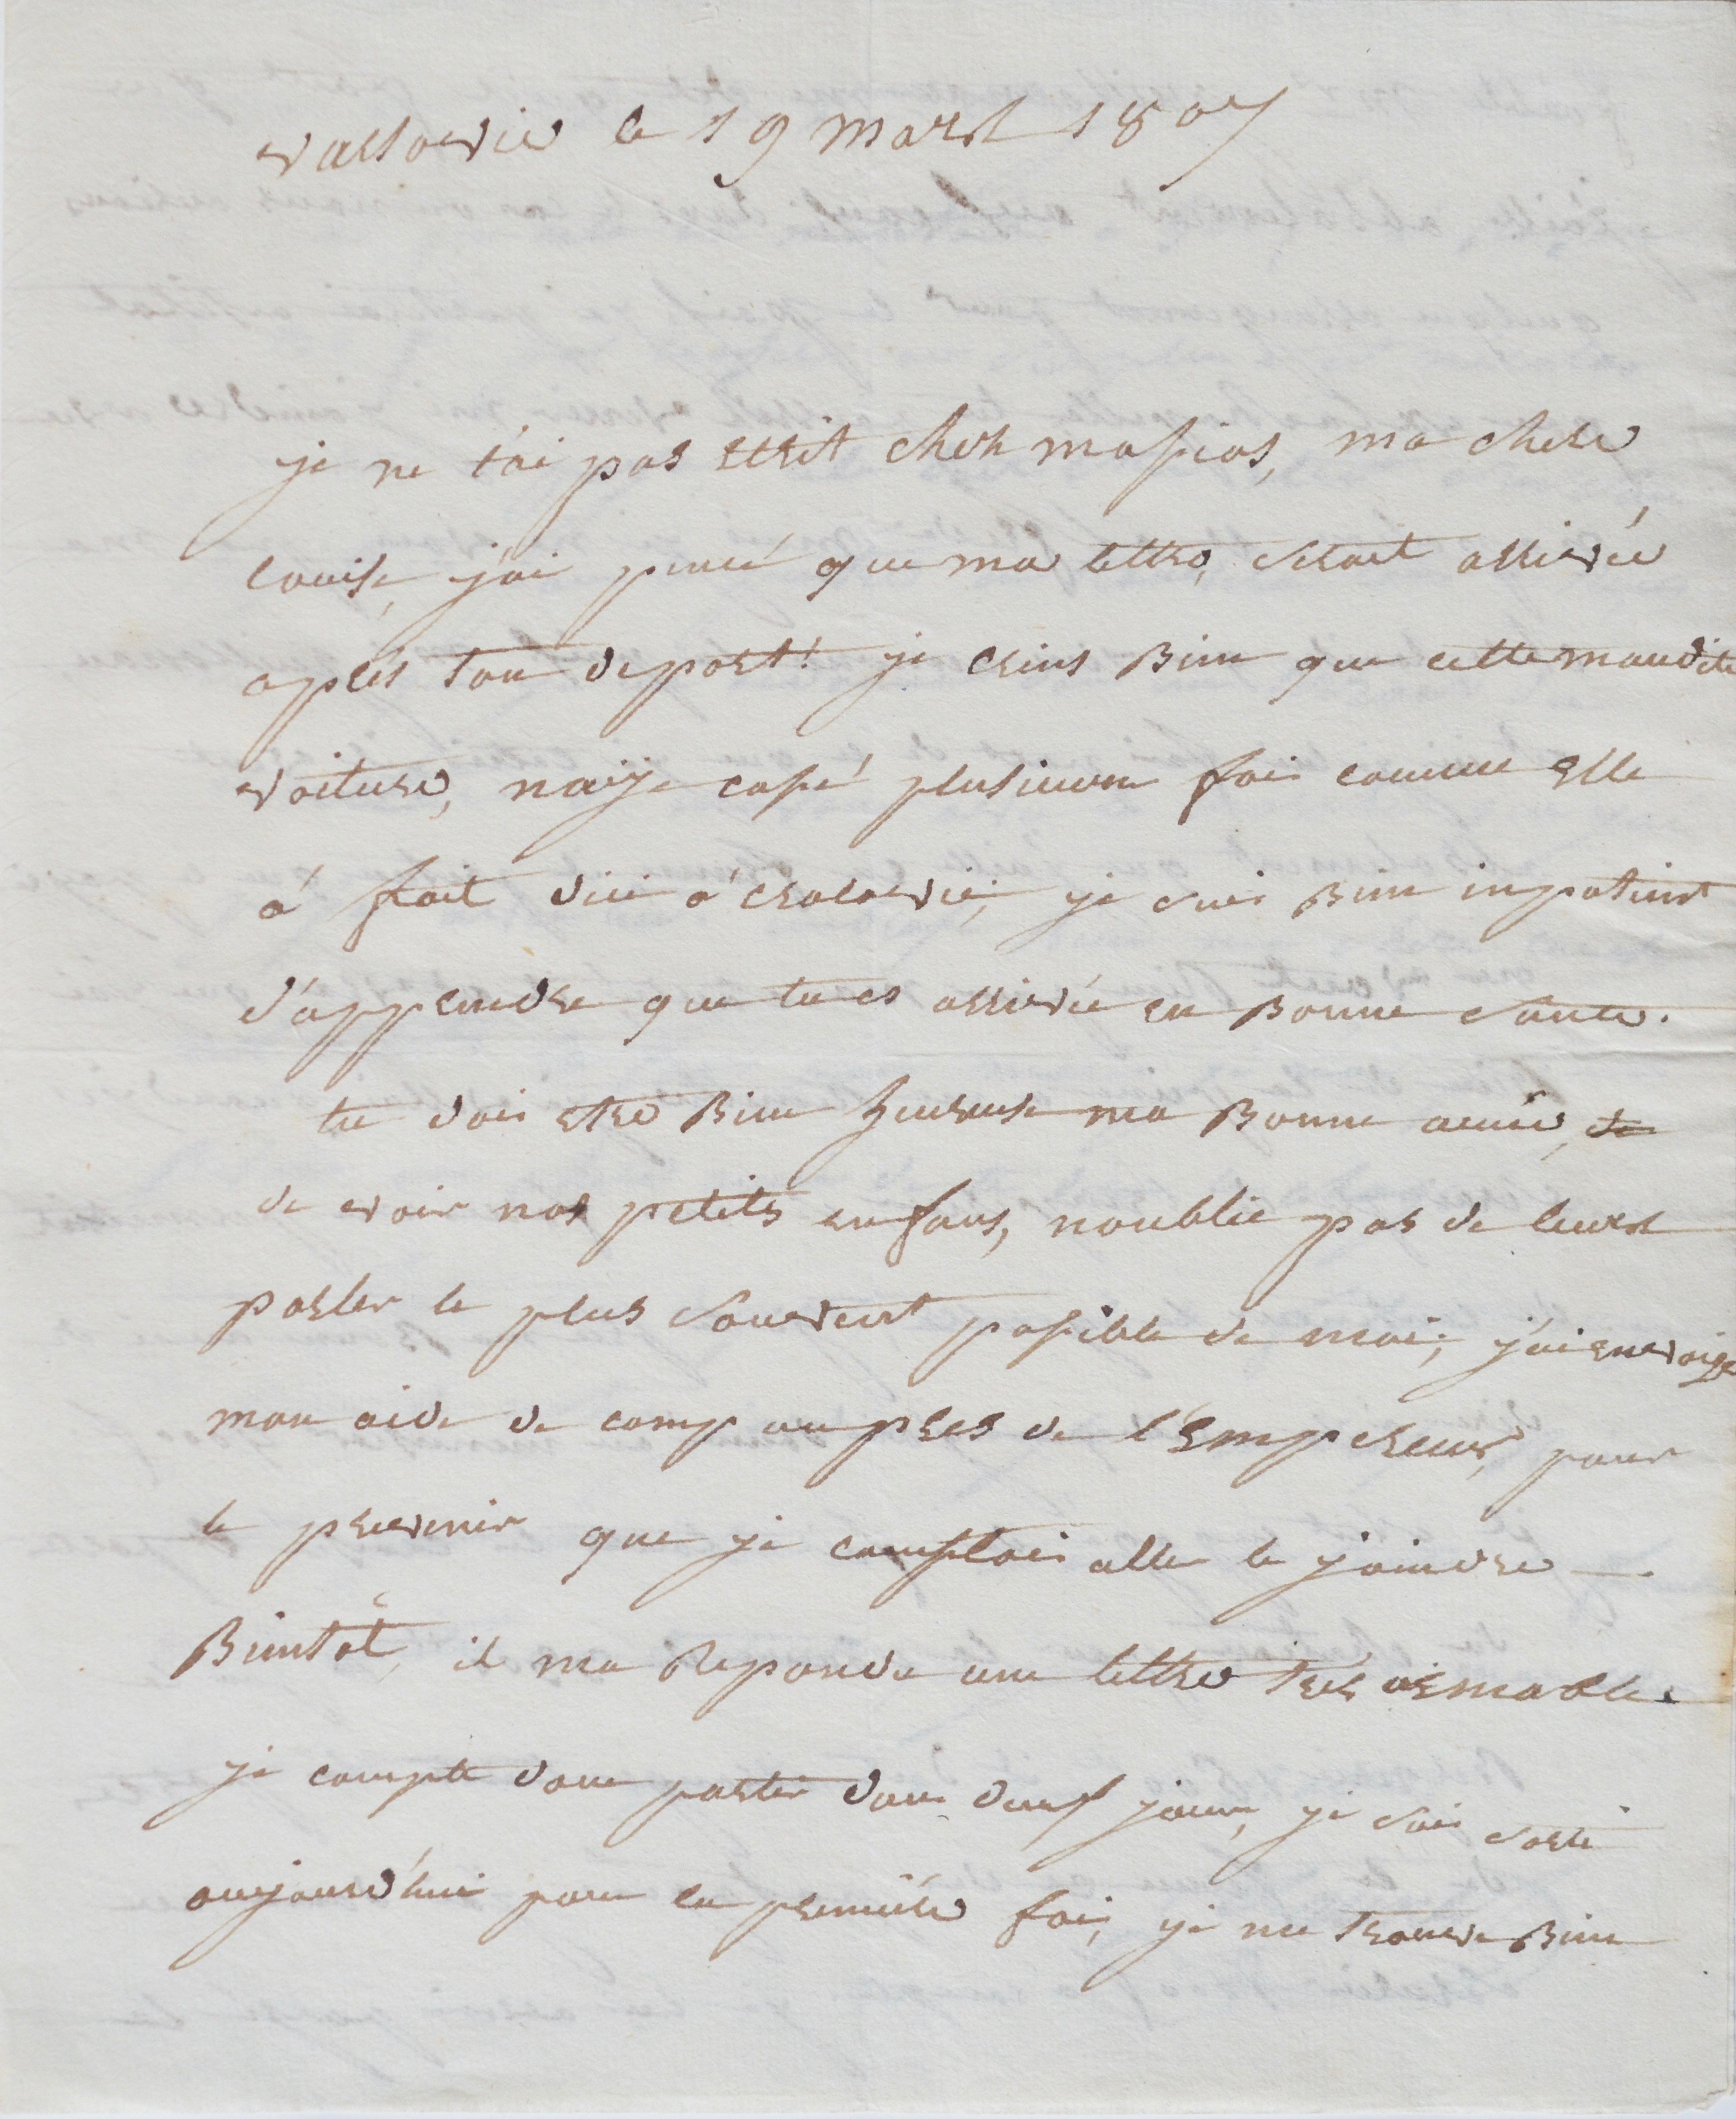 varsovie le 19 mars 1807
je ne t'ai pas ecrit chez massias, ma chere
louise, j'ai pensé que ma lettre, serait arrivée
après ton depart! je crins Bien que cette maudite
voiture, naije cassé plusieurs fois comme elle
à fait dici à cracovie, je suis Bien inpatient
d'apprendre que tu es arrivée en Bonne sante.
tu dois etre Bien heureuse ma Bonne amie,
de voir nos petits enfans, noublie pas de leurs
parler le plus souvent possible de moi; j'ai envoigé
mon aide de camp aupres de l'Empereur, pour
le prevenir que je comptois aller le joindre
Bientôt, il ma Reponda une lettre tres aimable.
je compte donc partir dans deux jours, je suis sorti
aujourd'hui pour la premiére fois, je me trouve Bien